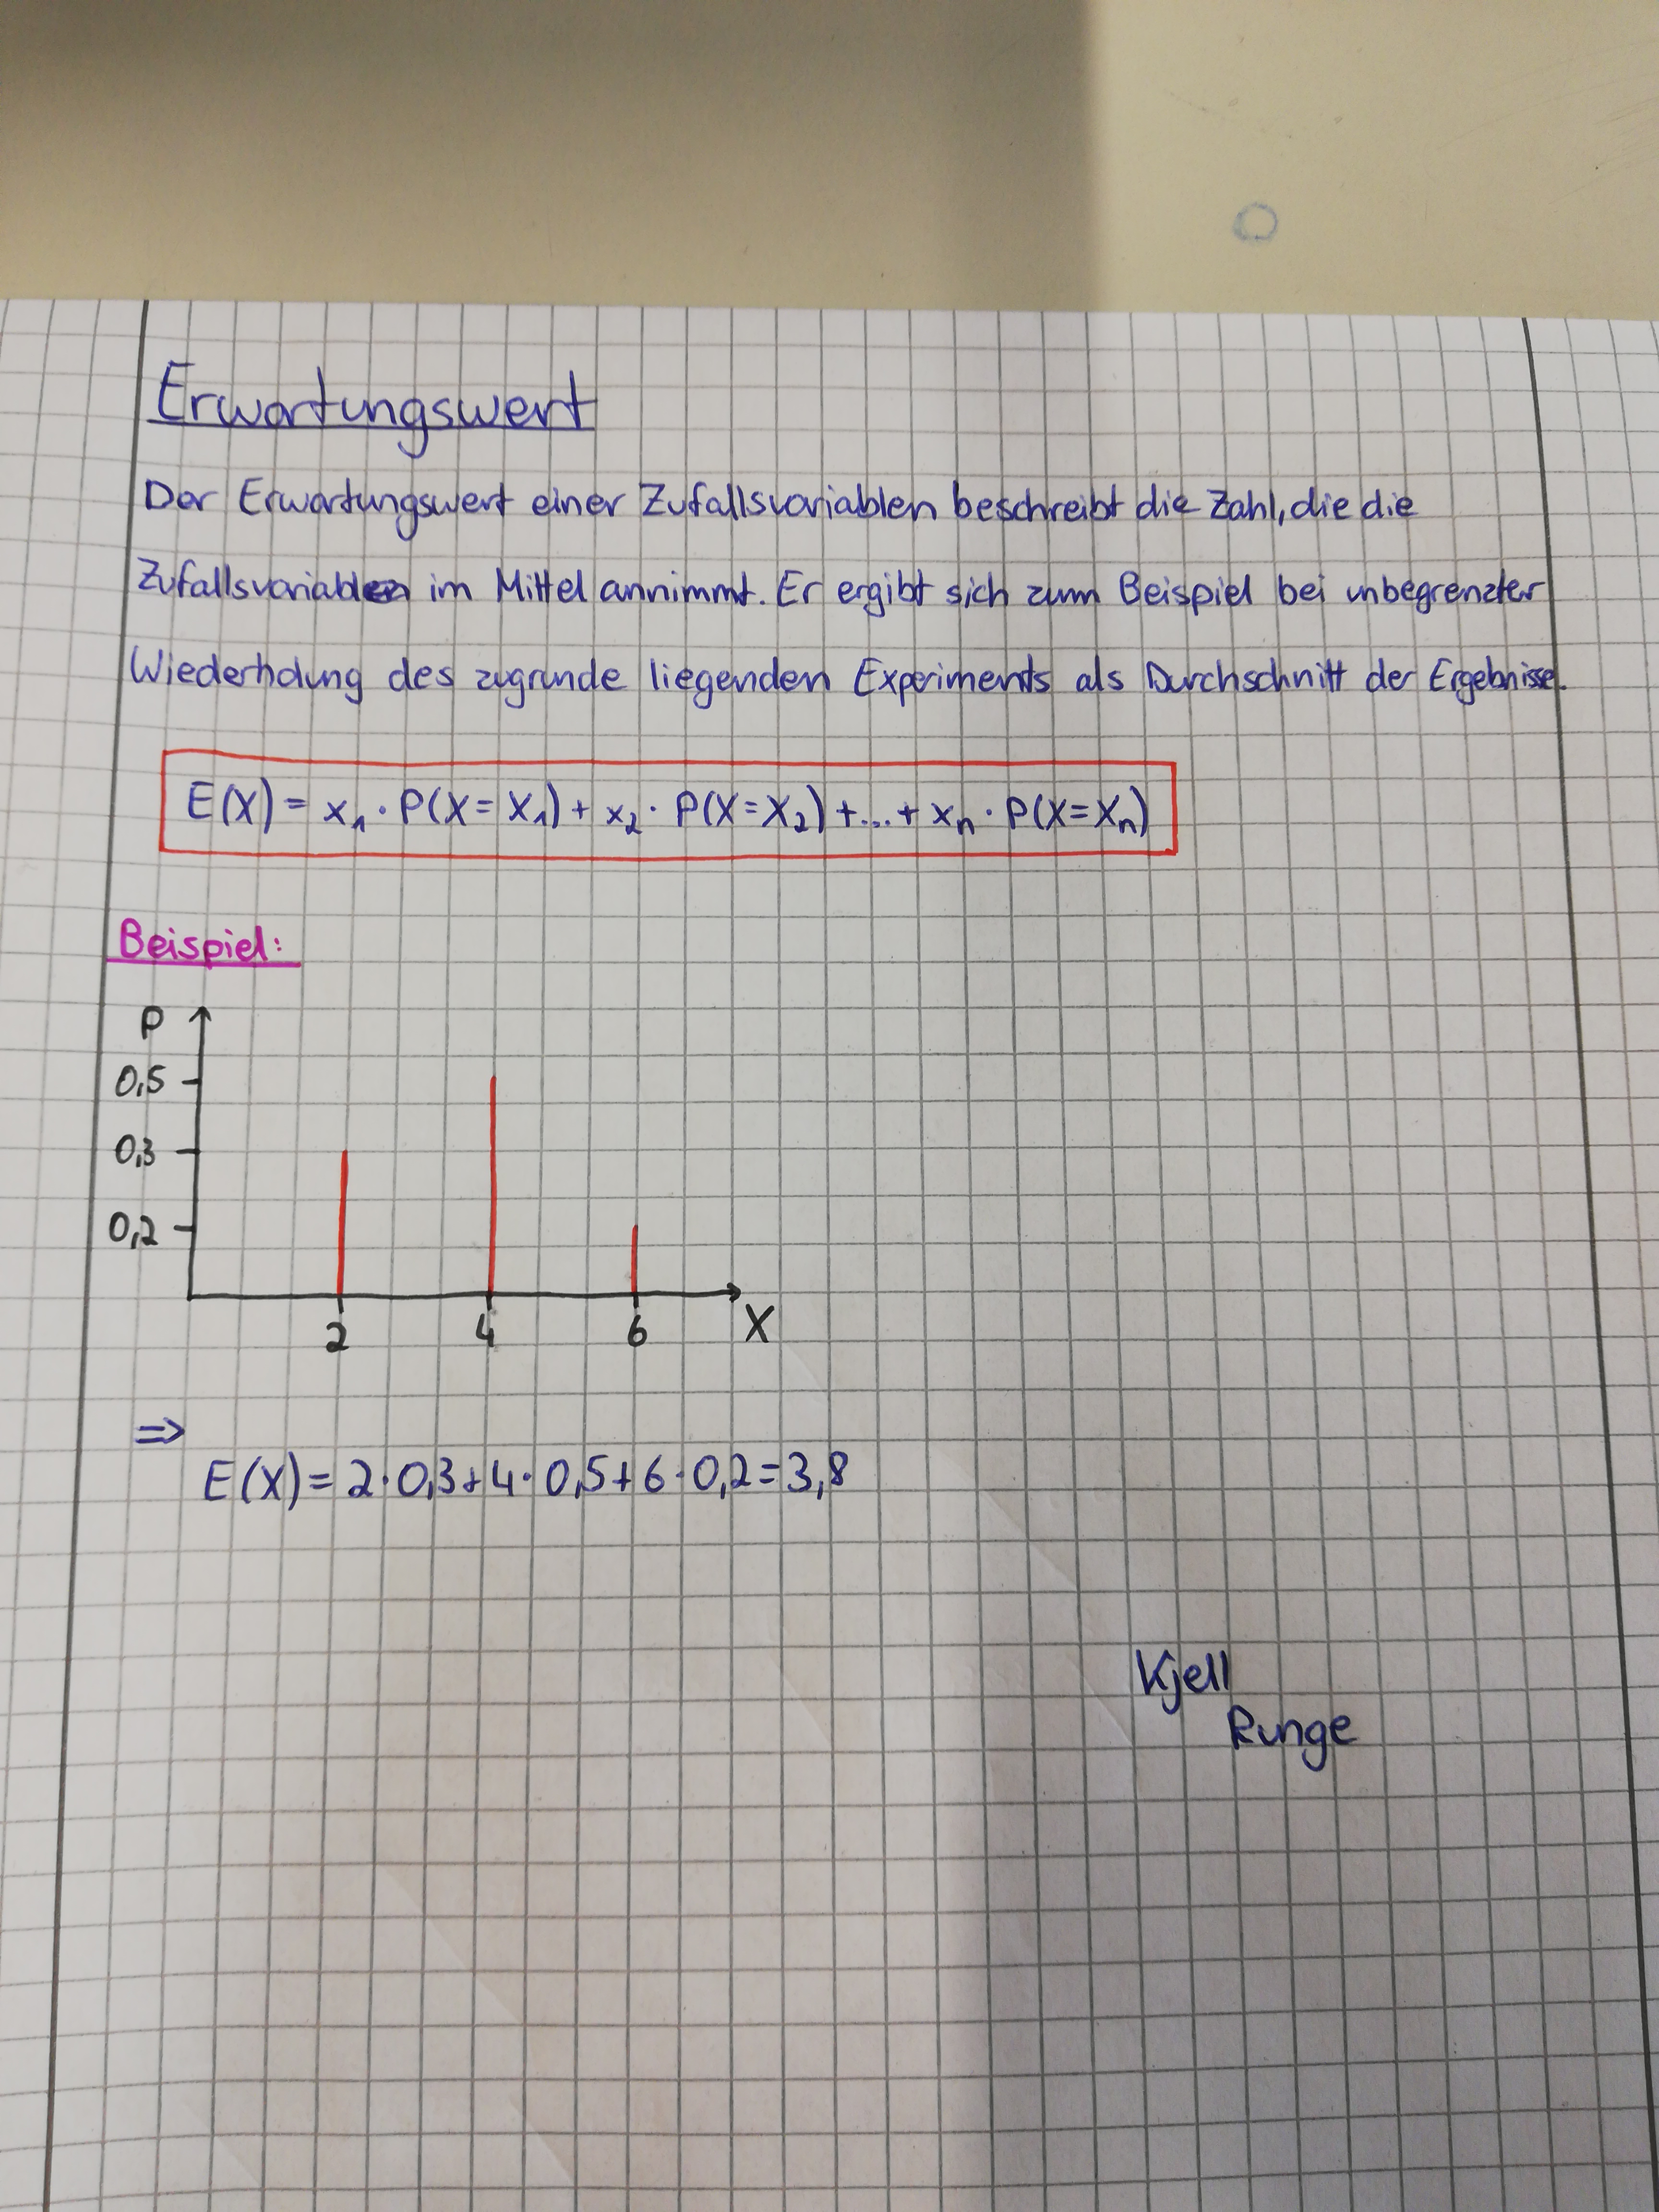 Erwartungswert
Der Erwartungswert einer Zufallsvariablen beschreibt die Zahl, die die
Zufallsvariablen im Mittel annimmt. Er ergibt sich zum Beispiel bei unbegrenzter
Wiederholung des zugrunde liegenden Experiments als Durchschnitt der Ergebnisse.
E(X) = x₁ · P(X = X₁) + x₂ · P(X = X₂) + ... + xₙ · P(X = Xₙ)
Beispiel:
P
0,5
0,3
0,2
2 4 6 X
⇒
E(X) = 2 · 0,3 + 4 · 0,5 + 6 · 0,2 = 3,8
Kjell
Runge